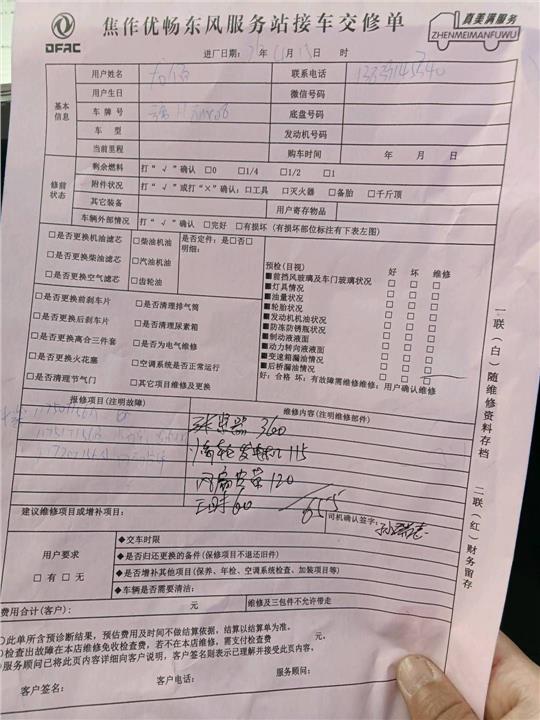 DFAC
焦作优畅东风服务站接车交修单
真美满服务
ZHENMEIMANFUWU
进厂日期： 年 月 日 时
基本信息
用户姓名 联系电话
用户生日 微信号码
车牌号 底盘号码
车型 发动机号码
当前里程 购车时间 年 月 日
修前状态
剩余燃料 打“√”确认 □0 □1/4 □1/2 □1
附件状况 打“√”或打“×”确认：□工具 □灭火器 □备胎 □千斤顶
其它装备 用户寄存物品
车辆外部情况 打“√”确认 □完好 □有损坏（有损坏部位标注有下表左图）
□是否更换机油滤芯 □柴油机油 是否定件：是□否□
明细：
□是否更换柴油滤芯 □汽油机油
□是否更换空气滤芯 □齿轮油
□是否更换前刹车片 □是否清理排气筒
□是否更换后刹车片 □是否清理尿素箱
□是否更换离合三件套 □是否为电气维修
□是否更换火花塞 □空调系统是否正常运行
□是否清理节气门 □其它项目维修及更换
预检(目视) 好 坏 维修
■前挡风玻璃及车门玻璃状况 □ □ □
■灯具情况 □ □ □
■油量状况 □ □ □
■轮胎状况 □ □ □
■发动机机油状况 □ □ □
■防冻防锈瓶状况 □ □ □
■制动液液面 □ □ □
■动力转向液液面 □ □ □
■变速箱漏油情况 □ □ □
■后桥漏油情况 □ □ □
好：合格 坏：有故障需维修维修：用户确认维修
报修项目(注明故障) 维修内容(注明维修部件)
张紧器 360
惰轮发电机 115
风扇皮带 120
工时 60
655
建议维修项目或增补项目： 司机确认签字：
用户要求
□有 □无
◆交车时限
◆是否归还更换的备件(保修项目不退还旧件)
◆是否增补其他项目(保养、年检、空调系统检查、加装项目等)
◆车辆是否需要清洁：
费用合计(客户)： 元 维修及三包件不允许带走
)此单所含预诊断结果，预估费用及时间不做结算依据，结算以结算单为准。
)检查出故障在本店维修免收检查费，若不在本店维修，需支付检查费 元。
)服务顾问已将此页内容详细向客户说明，客户签名则表示已理解并接受此页内容。
客户签名： 客户电话： 服务顾问：
一联（白）随维修资料存档
二联（红）财务留存